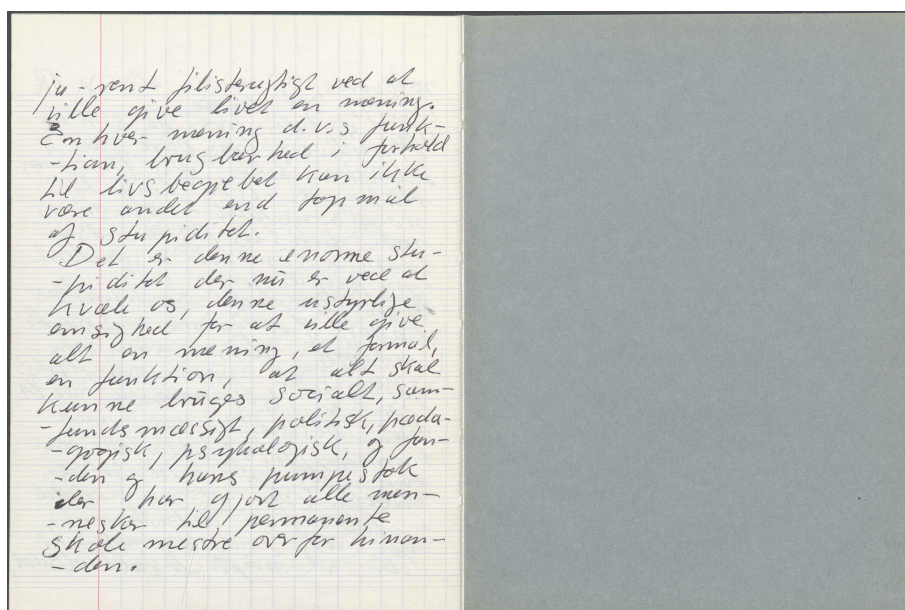 ju - rent filistrøgtigt ved at
ville give livet en mening.
Enhver mening d.v.s funk-
-tion, brugbarhed i forhold
til livsbegrebet kan ikke
være andet end topmål
af stupiditet.
Det er denne enorme stu-
-piditet der nu er ved at
kvæle os, denne ustyrlige
emsighed for at ville give
alt en mening, et formål,
en funktion, at alt skal
kunne bruges socialt, sam-
-fundsmæssigt, politisk, pæda-
-gogisk, psykologisk, og fan-
-den og hans pumpestok
der har gjort alle men-
-nesker til permanente
skolemestre overfor hinan-
-den.